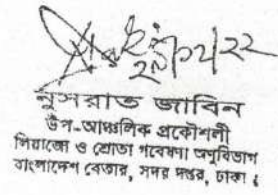 নুসরাত জাবিন
উপ-আঞ্চলিক প্রকৌশলী
লিয়াজো ও শ্রোতা গবেষণা অনুবিভাগ
বাংলাদেশ বেতার, সদর দপ্তর, ঢাকা।